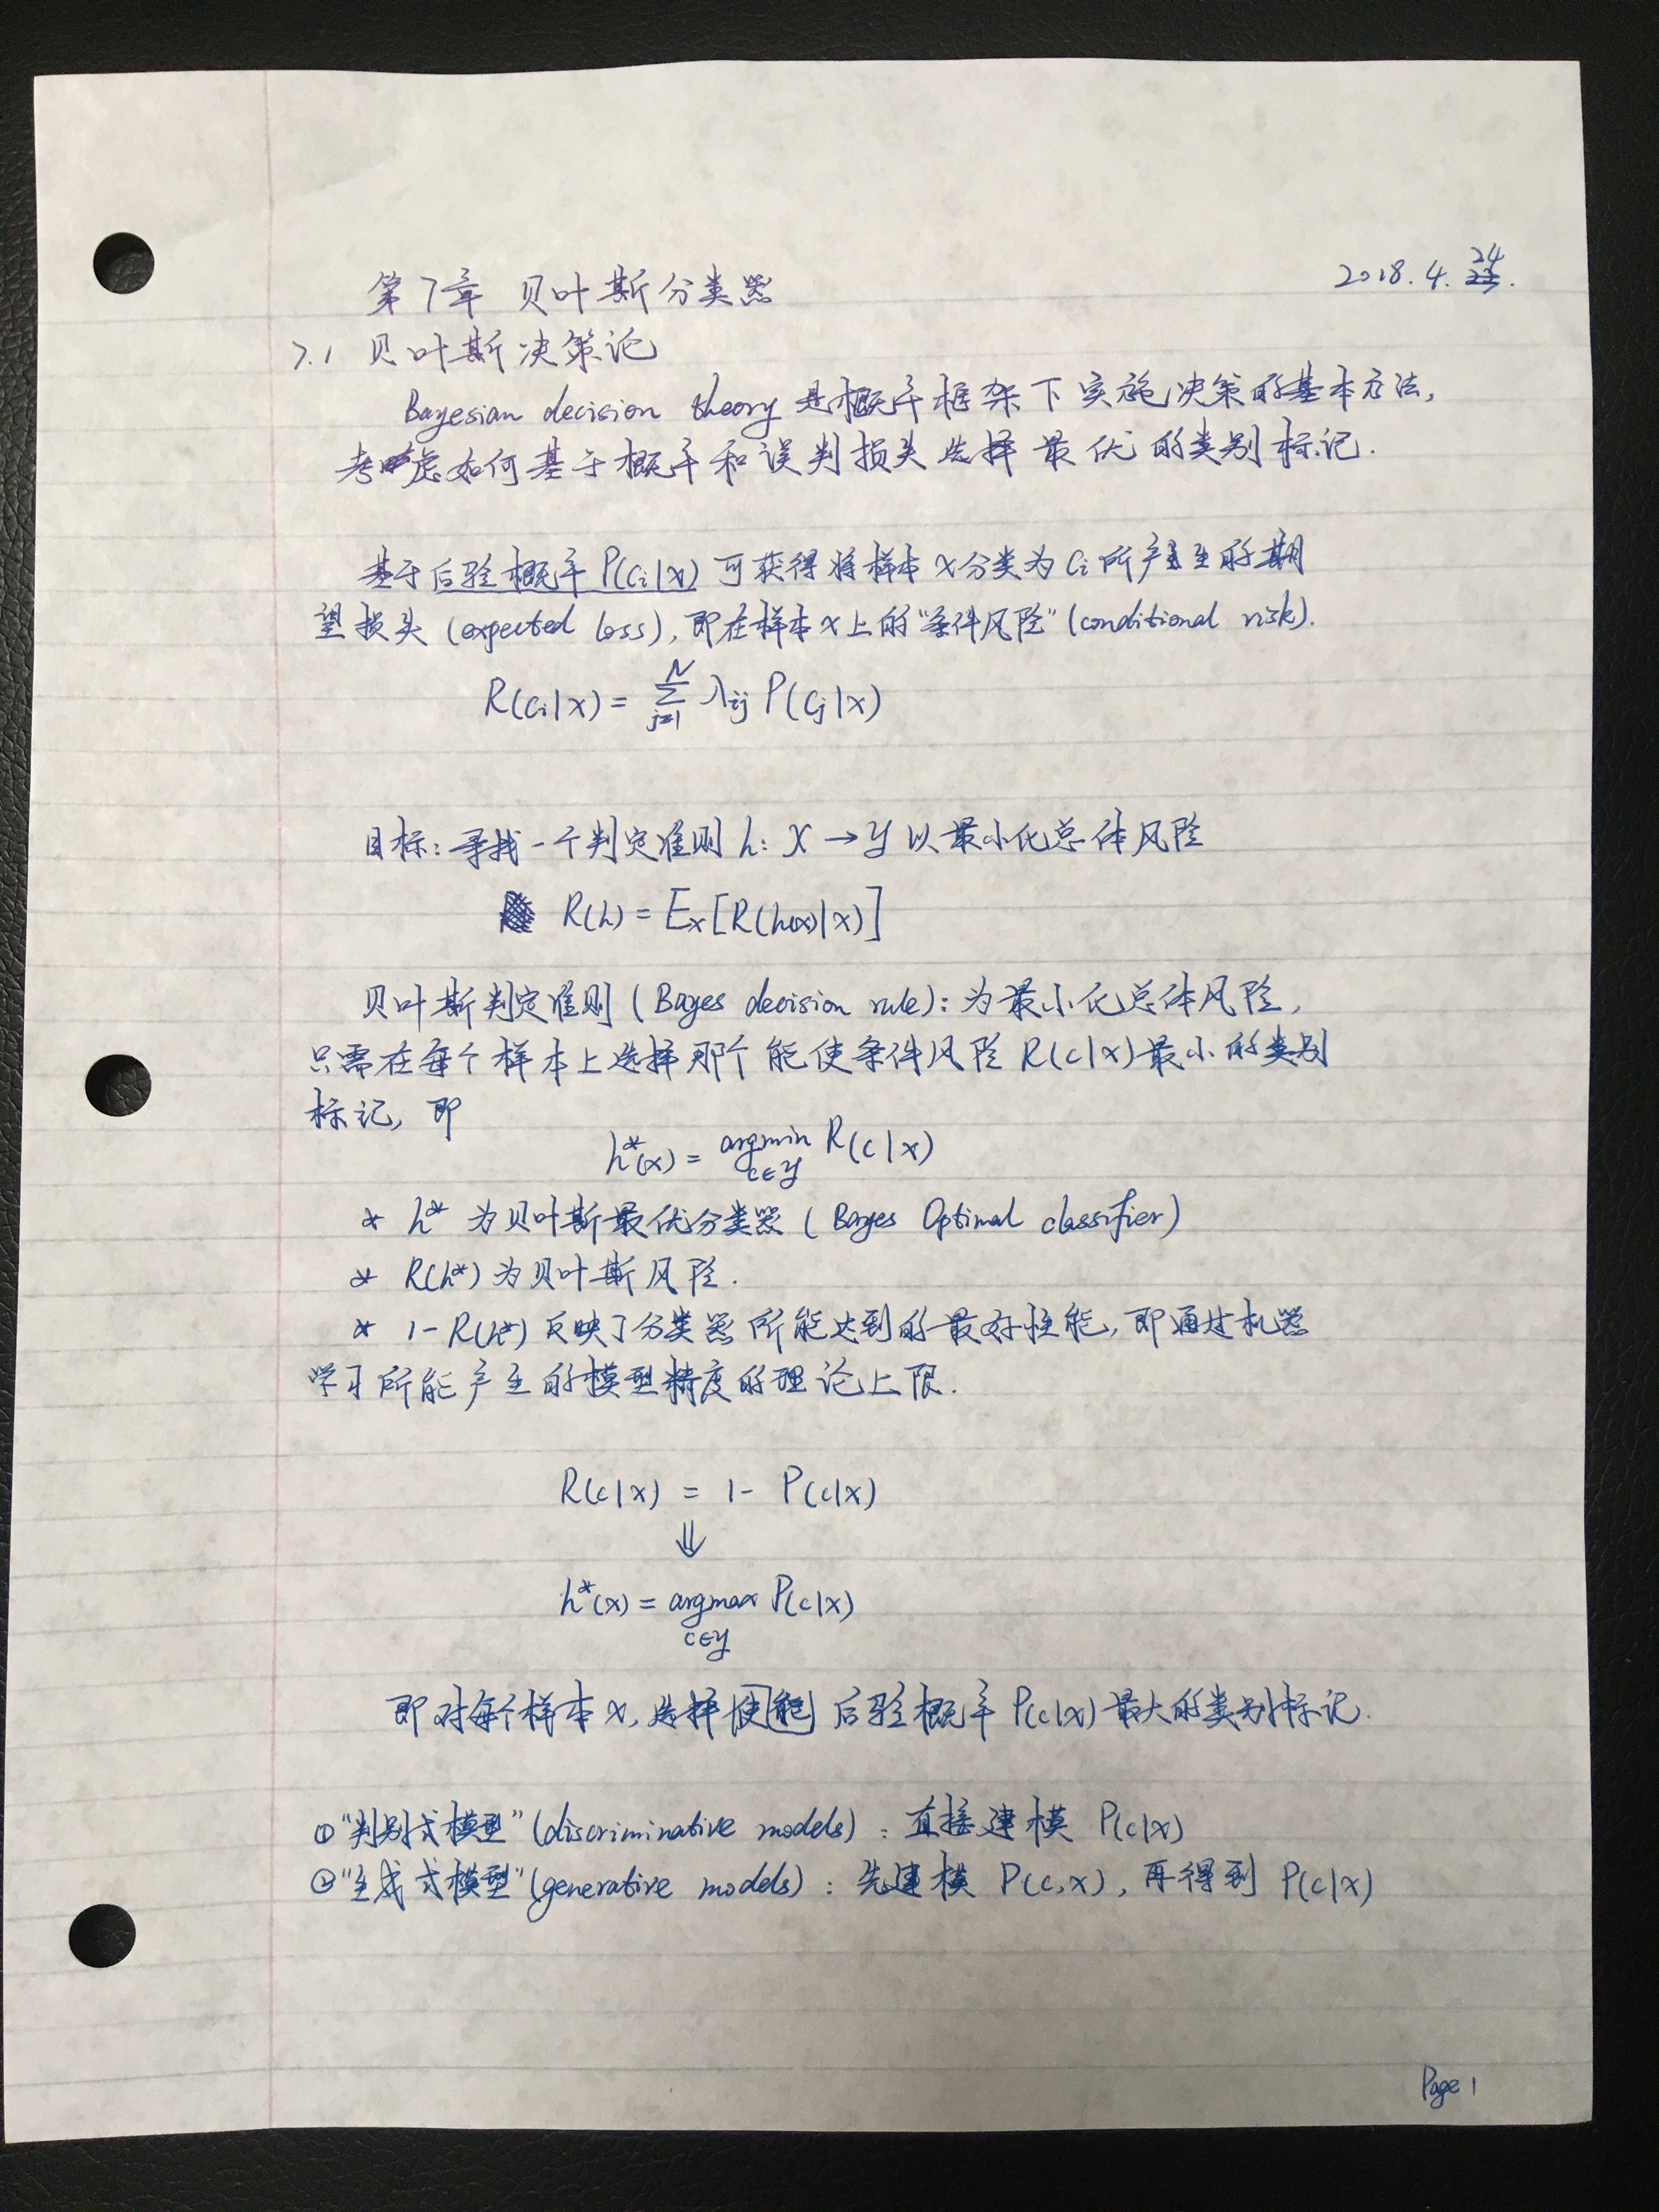 2018.4.24.
第7章 贝叶斯分类器
7.1 贝叶斯决策论
Bayesian decision theory 是概率框架下实施决策的基本方法,
考虑如何基于概率和误判损失选择最优的类别标记.
基于后验概率 P(ci|x) 可获得将样本 x 分类为 ci 所产生的期
望损失 (expected loss), 即在样本 x 上的"条件风险" (conditional risk).
R(ci|x) = ∑_{j=1}^{N} λij P(cj|x)
目标: 寻找一个判定准则 h: X → Y 以最小化总体风险
R(h) = Ex[R(h(x)|x)]
贝叶斯判定准则 (Bayes decision rule): 为最小化总体风险,
只需在每个样本上选择那个能使条件风险 R(c|x) 最小的类别
标记, 即
h*(x) = argmin_{c∈Y} R(c|x)
* h* 为贝叶斯最优分类器 (Bayes Optimal classifier)
* R(h*) 为贝叶斯风险.
* 1-R(h*) 反映了分类器所能达到的最好性能, 即通过机器
学习所能产生的模型精度的理论上限.
R(c|x) = 1- P(c|x)
⇓
h*(x) = argmax_{c∈Y} P(c|x)
即对每个样本 x, 选择使能后验概率 P(c|x) 最大的类别标记.
① "判别式模型" (discriminative models) : 直接建模 P(c|x)
② "生成式模型" (generative models) : 先建模 P(c,x), 再得到 P(c|x)
Page 1